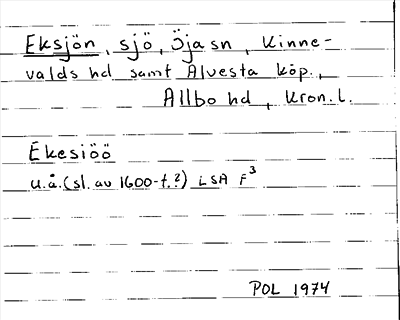 Eksjön, sjö, Öja sn, Kinne-
valds hd samt Alvesta köp.,
Allbo hd, Kron. l.
Ekesiöö
u.å. (sl. av 1600-t.?) LSA F³
POL 1974